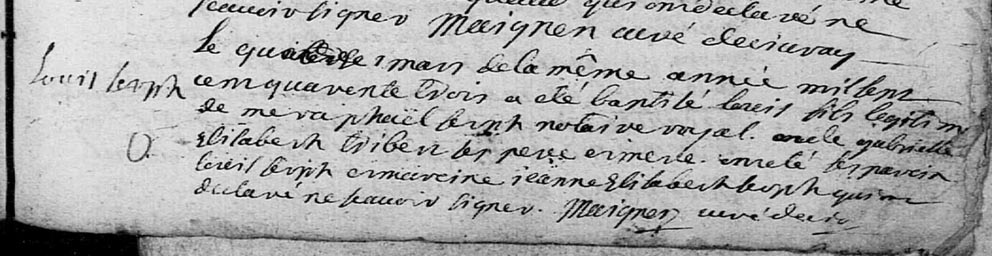 scavoir signer Maignen curé decivray
Le quatorze mars de la même année mil sept
Louis serph
cem quarente trois a été baptisé louis fils legitime
de me raphaël serph notaire royal. et de gabrielle
Elisabeth tribert ses pere et mere. ont eté ses parein
louis serph et mareine jeanne Elisabeth serph qui ont
declaré ne scavoir signer. Maignen curé deciv